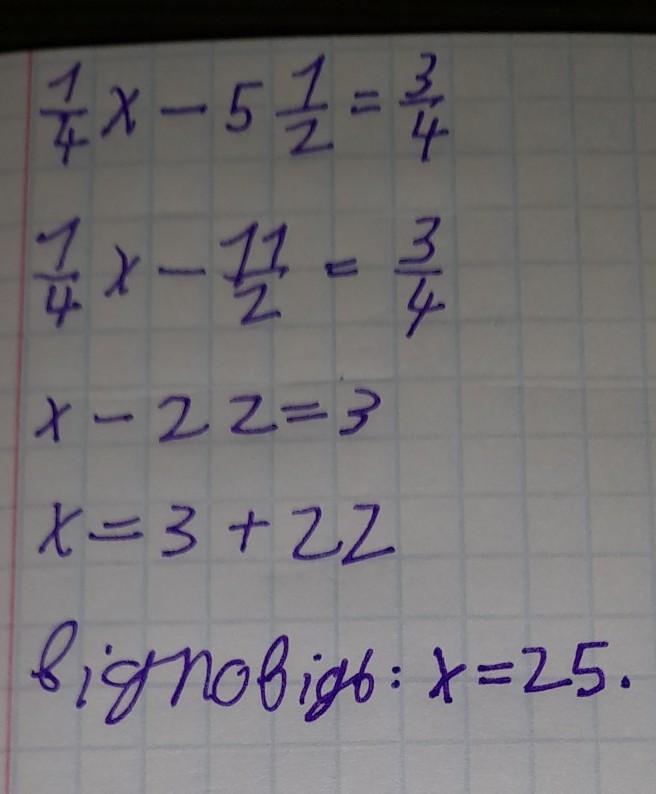 1/4 x - 5 1/2 = 3/4
1/4 x - 11/2 = 3/4
x - 22 = 3
x = 3 + 22
відповідь: x = 25.